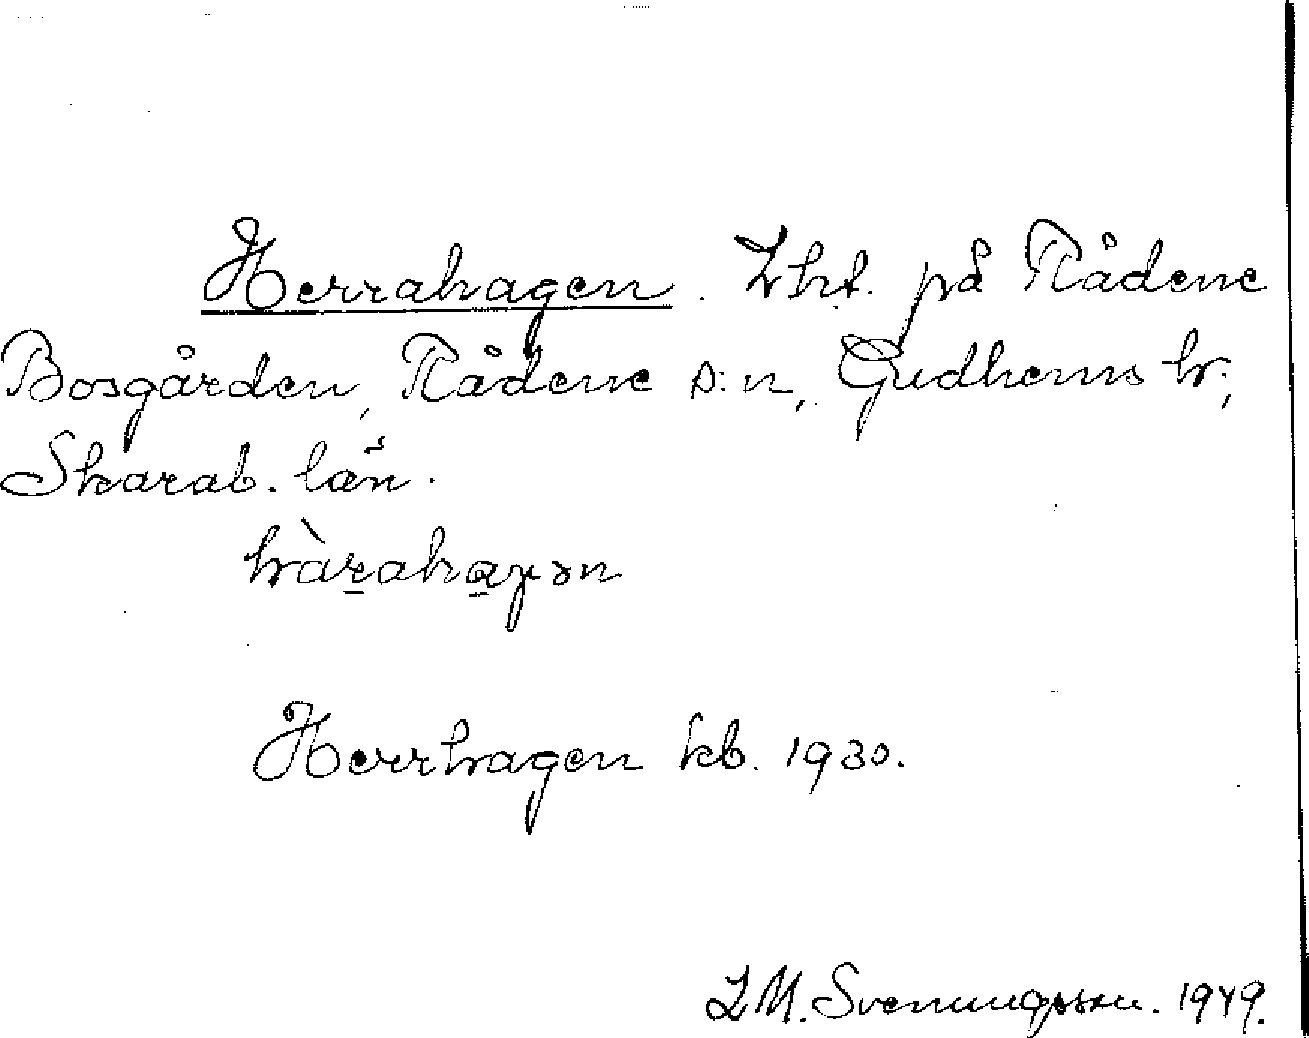 Herrahagen. Lht. på Rådene
Bosgården, Rådene s:n, Gudhems hr;
Skarab. län.
hàrahaɣən
Herrhagen kb. 1930.
L M. Svenungsson. 1949.